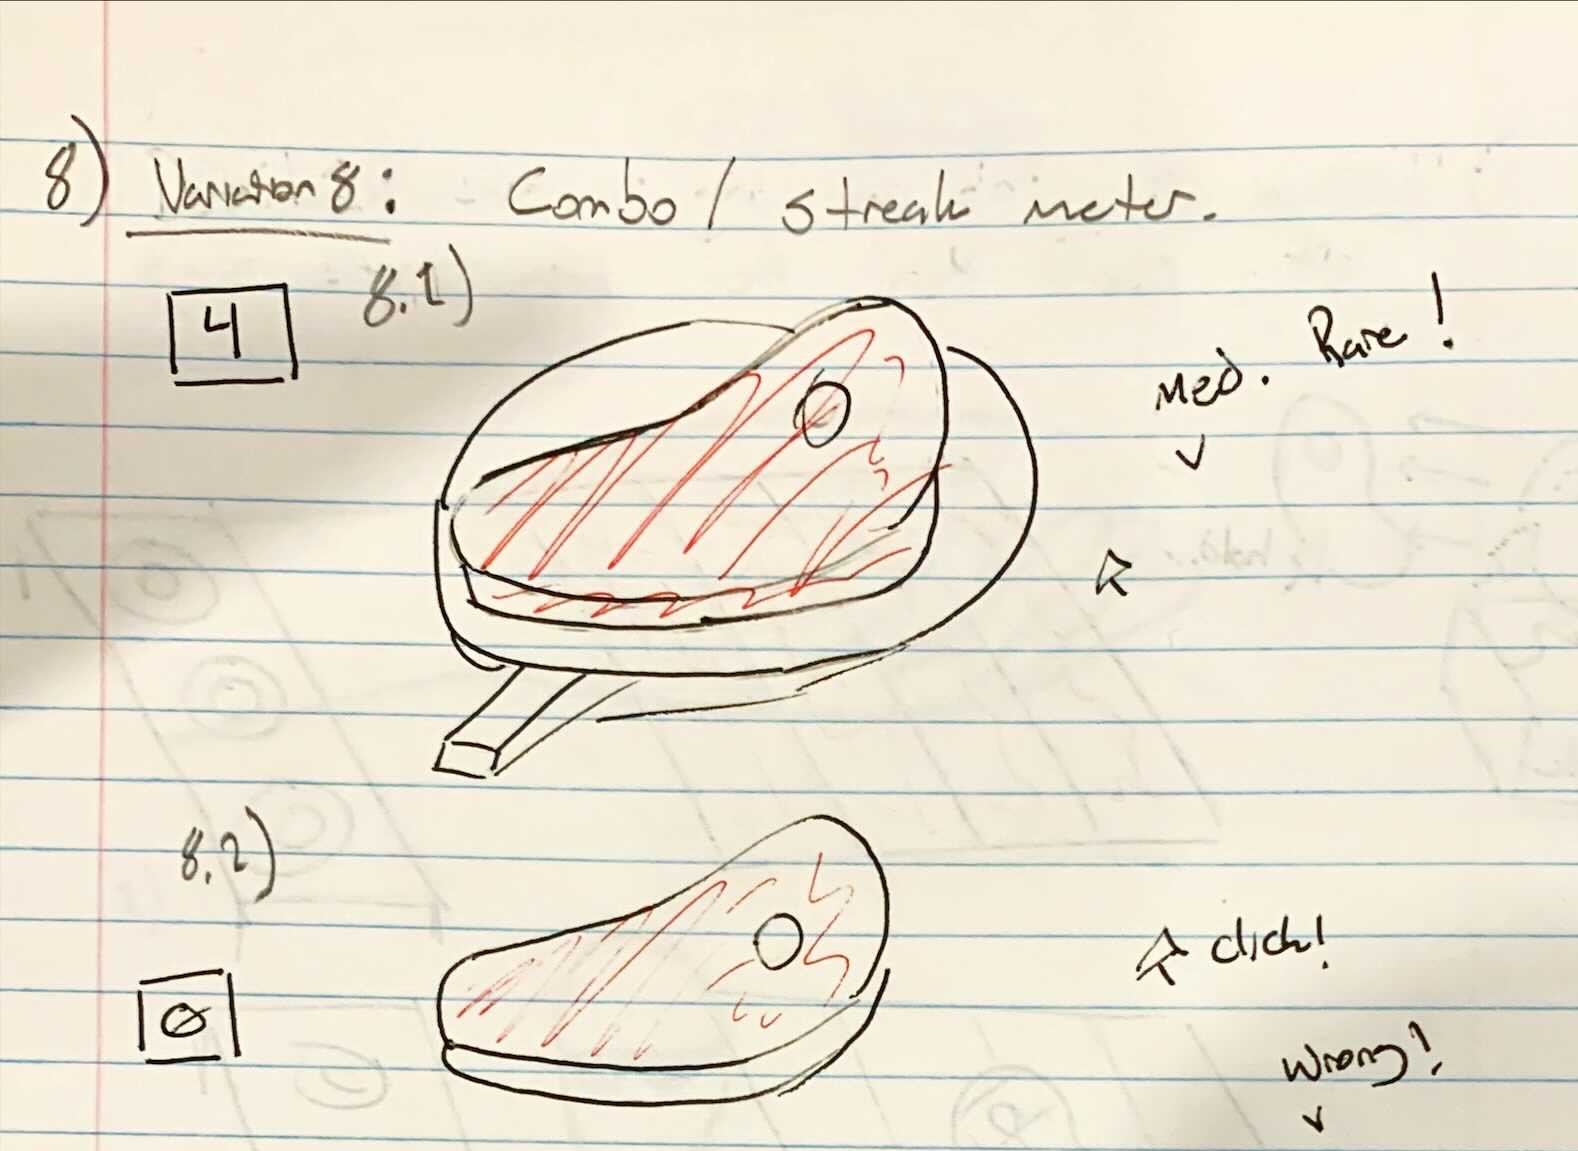 8) Variation 8: Combo / streak meter.
8.1)
4
Med. Rare!
8.2)
click!
0
Wrong!